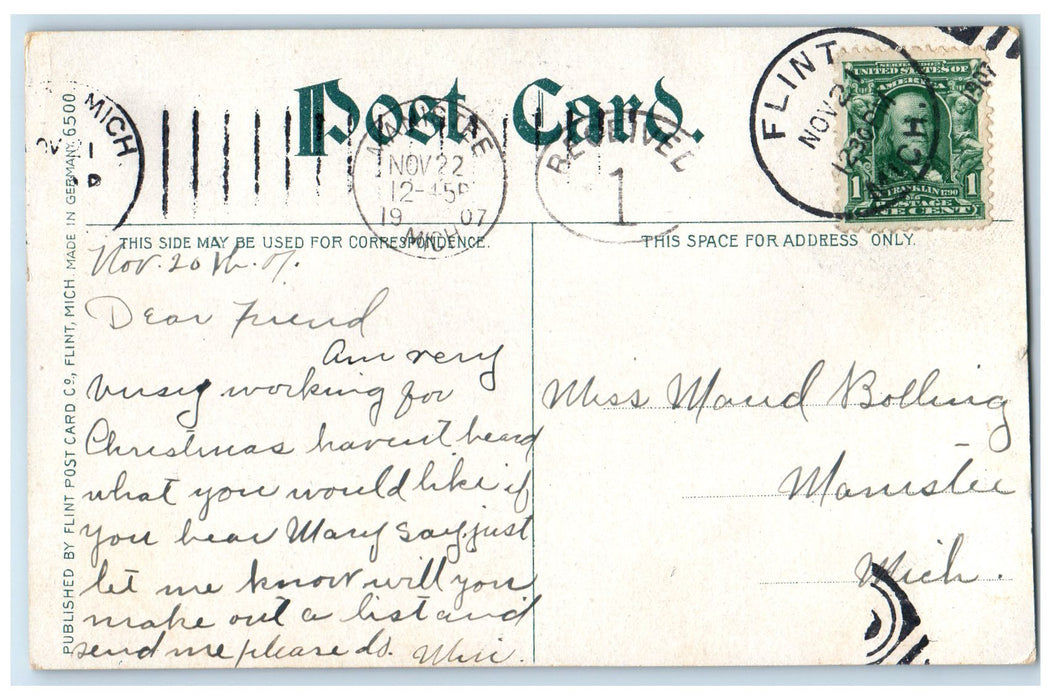 Post Card.
THIS SIDE MAY BE USED FOR CORRESPONDENCE.
THIS SPACE FOR ADDRESS ONLY.
PUBLISHED BY FLINT POST CARD Cº., FLINT, MICH. MADE IN GERMANY. 6500.
MICH
MANISTEE
NOV 22
12-45P
19 07
MICH
RECEIVED
1
FLINT
NOV 21
1230PM
1907
MICH.
SERIES 1902
UNITED STATES OF
AMERICA
1 1
FRANKLIN 1790
POSTAGE
ONE CENT
Nov. 20th. 07.
Dear Friend
Am very
busy working for
Christmas havent heard
what you would like if
you hear Mary say, just
let me know will you
make out a list and
send me please do. Min.
Miss Maud Bolling
Manistee
Mich.